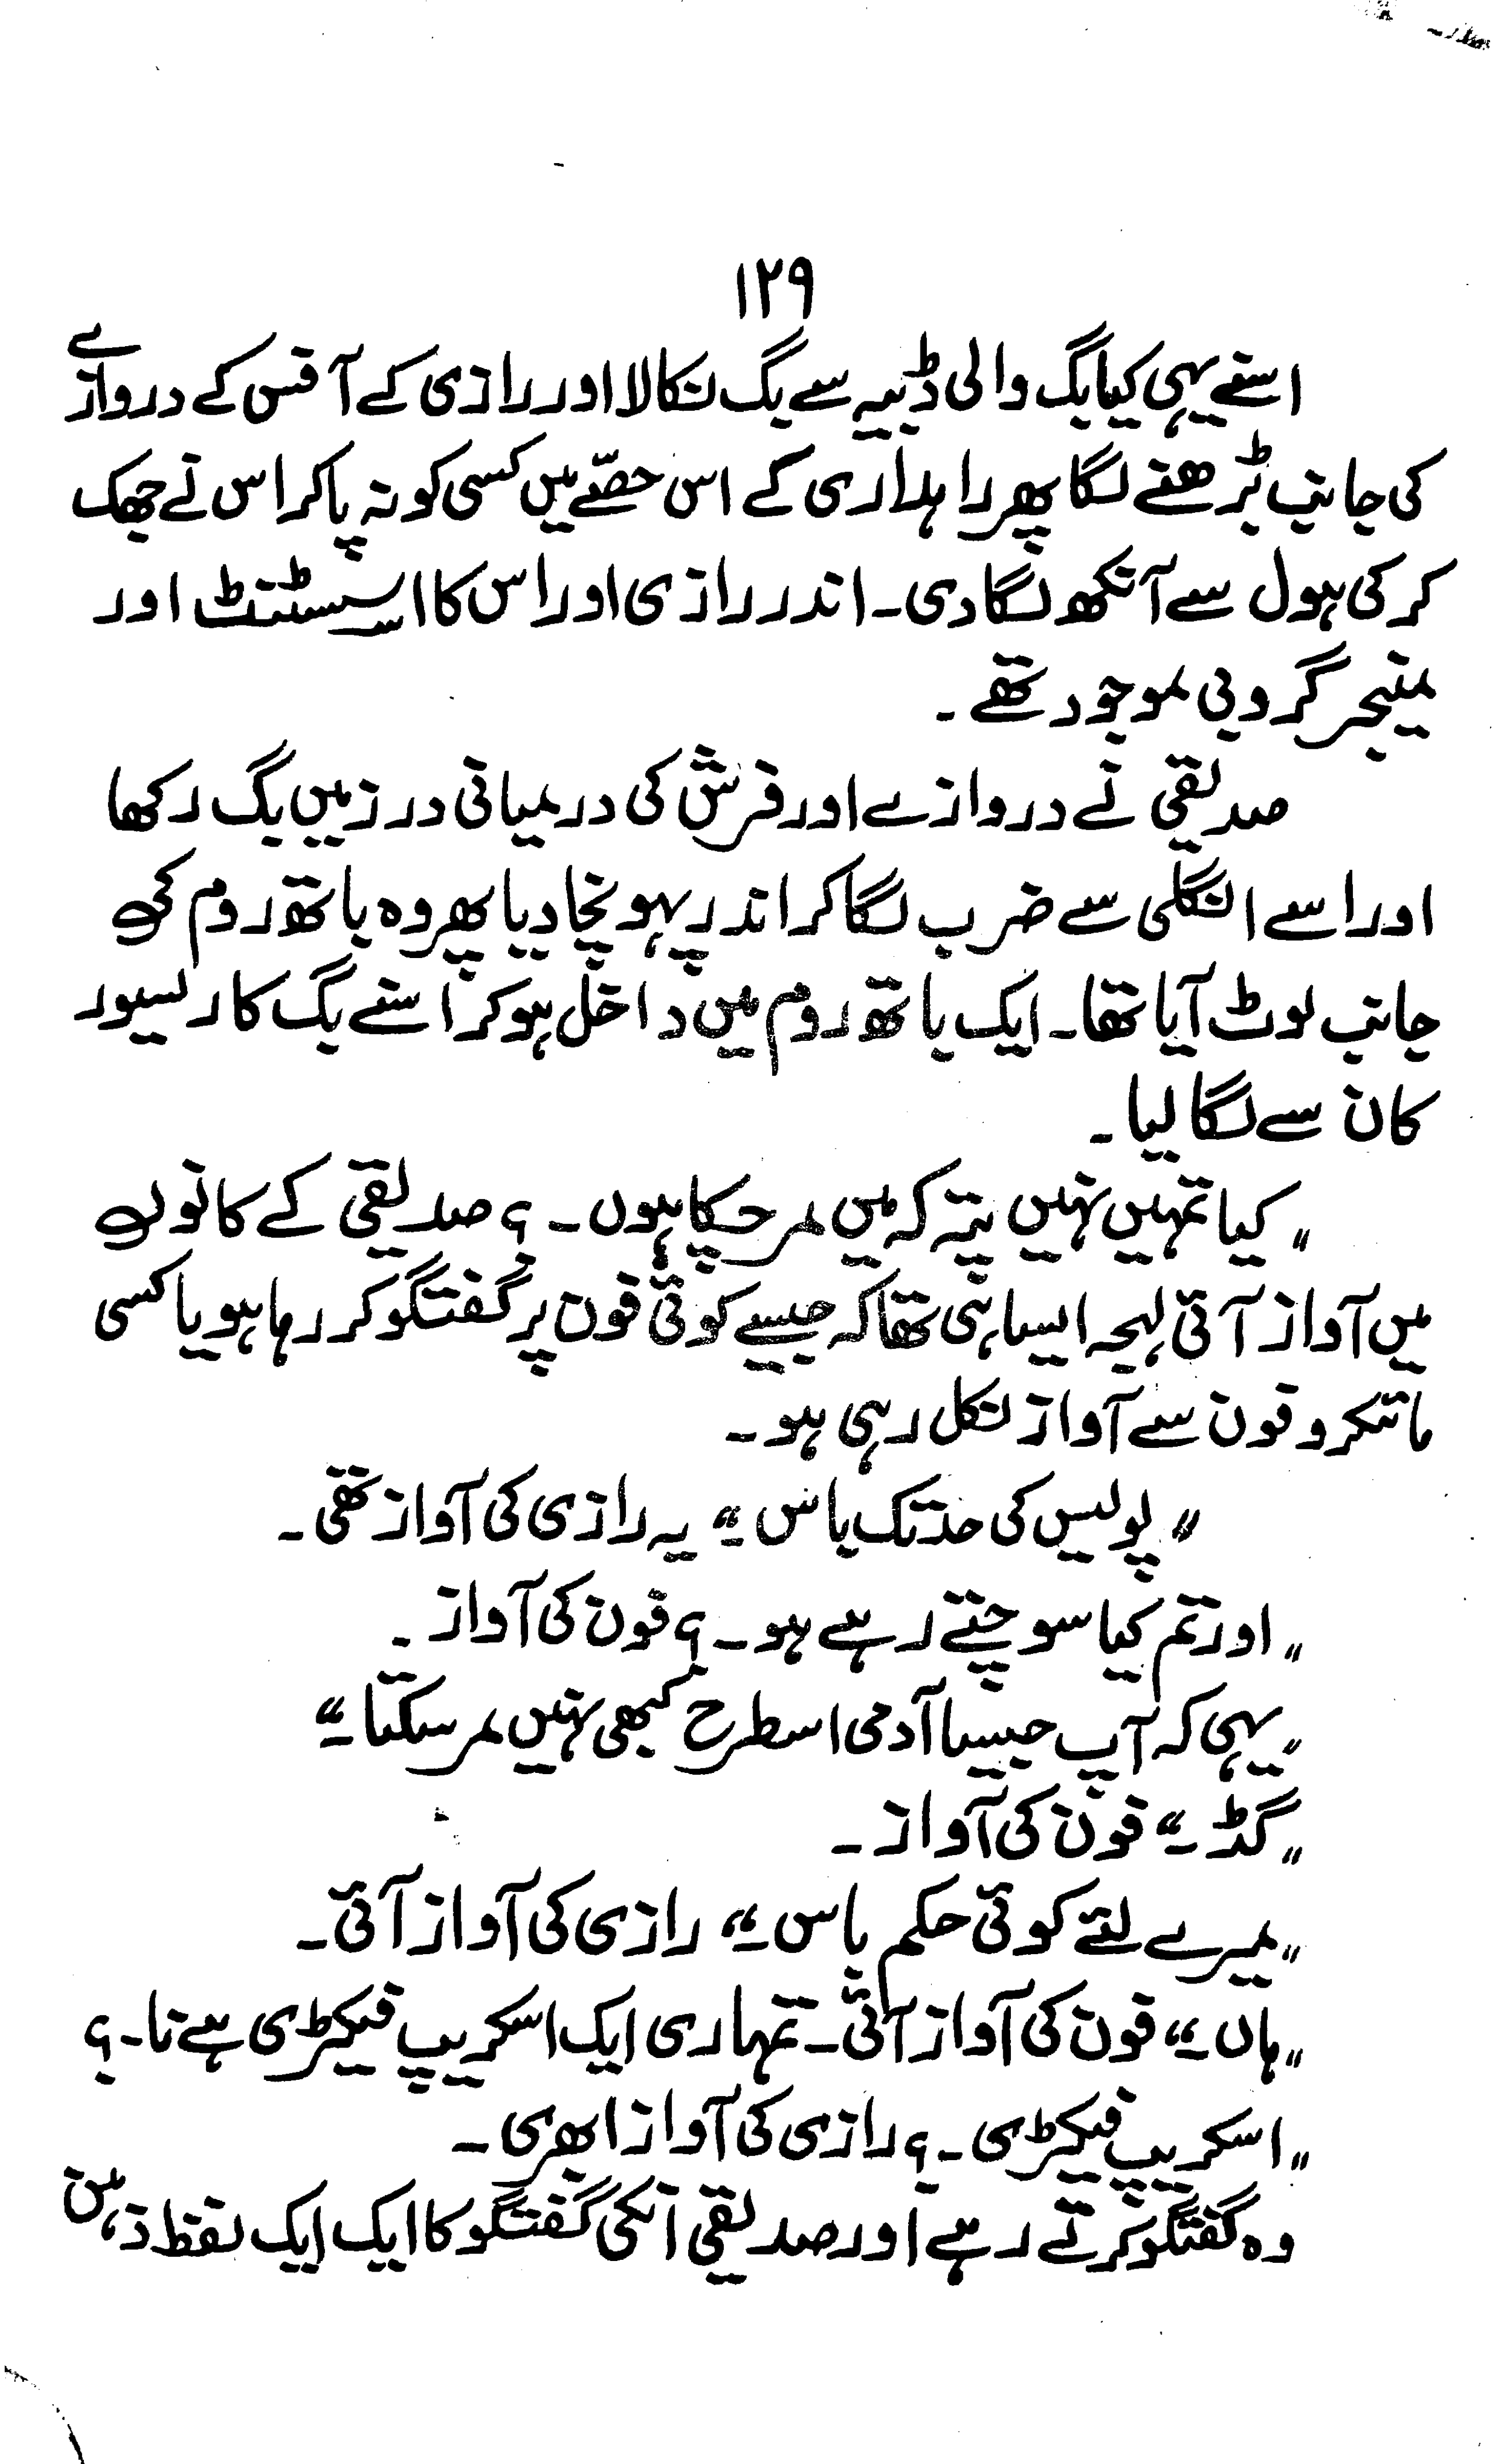 ۱۲۹
اسنے یہی کیا بگ والی ڈبیہ سے بگ نکالا اور رازی کے آفس کے دروازے
کی جانب بڑھنے لگا پھر راہداری کے اس حصّے میں کسی کو نہ پا کر اس نے جھک
کر کی ہول سے آنکھ لگا دی۔ اندر رازی اور اس کا اسسٹنٹ اور
منیجر گروبی موجود تھے۔
صدیقی نے دروازے اور فرش کی درمیانی درز میں بگ رکھا
اور اسے انگلی سے ضرب لگا کر اندر پہونچا دیا پھر وہ باتھ روم کی
جانب لوٹ آیا تھا۔ ایک باتھ روم میں داخل ہو کر اسنے بگ کا رسیور
کان سے لگا لیا۔
" کیا تمہیں نہیں پتہ کہ میں مر چکا ہوں۔ ؟ صدیقی کے کانوں
میں آواز آئی لہجہ ایسا ہی تھا کہ جیسے کوئی فون پر گفتگو کر رہا ہو یا کسی
مائکروفون سے آواز نکل رہی ہو۔
" پولیس کی حد تک باس ۔" یہ رازی کی آواز تھی۔
" اور تم کیا سوچتے رہے ہو۔ ؟ فون کی آواز۔
" یہی کہ آپ جیسا آدمی اسطرح کبھی نہیں مر سکتا ۔"
" گڈ ۔" فون کی آواز۔
" میرے لئے کوئی حکم باس ۔" رازی کی آواز آئی۔
" ہاں ۔" فون کی آواز آئی۔ تمہاری ایک اسکریپ فیکڑی ہے نا۔ ؟
" اسکریپ فیکڑی ۔ ؟ رازی کی آواز ابھری۔
وہ گفتگو کرتے رہے اور صدیقی انکی گفتگو کا ایک ایک لفظ ذہن